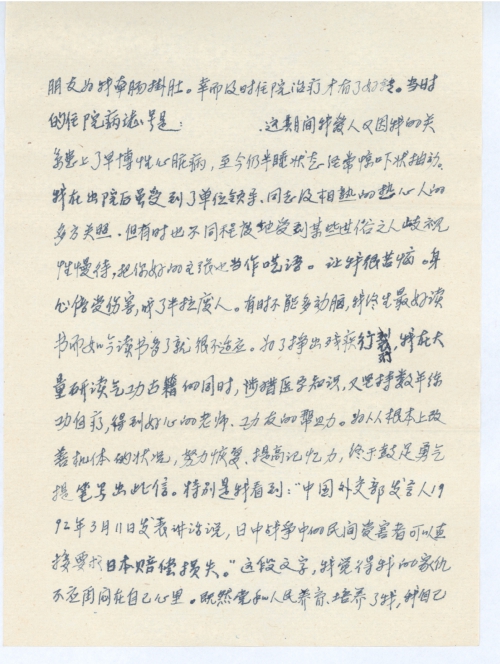 朋友为我牵肠掛肚。幸而及时住院治疗才有了好转。当时
的住院病志号是： 这期间我爱人又因我的关
系患上了早搏性心脏病，至今仍半睡状态经常惊吓状抽动。
我在出院后虽受到了单位领导、同志及相熟的热心人的
多方关照，但有时也不同程度地受到某些世俗之人歧视
性慢待，把你好的主张也当作呓语。让我很苦恼。身
心倍受伤害，成了半拉废人。有时不能多动脑，我终生最好读
书而如今读书多了就很不适应。为了挣出残疾行列，我在大
量研读气功古籍的同时，涉猎医学知识，又坚持数年练
功自疗，得到好心的老师、功友的帮助。为从根本上改
善机体的状况，努力恢复、提高记忆力，终于鼓足勇气
提笔写出此信。特别是我看到：“中国外交部发言人19
92年3月11日发表讲话说，日中战争中的民间受害者可以直
接要求日本赔偿损失。”这段文字，我觉得我的家仇
不应再闷在自己心里。既然党和人民养育、培养了我，我自己